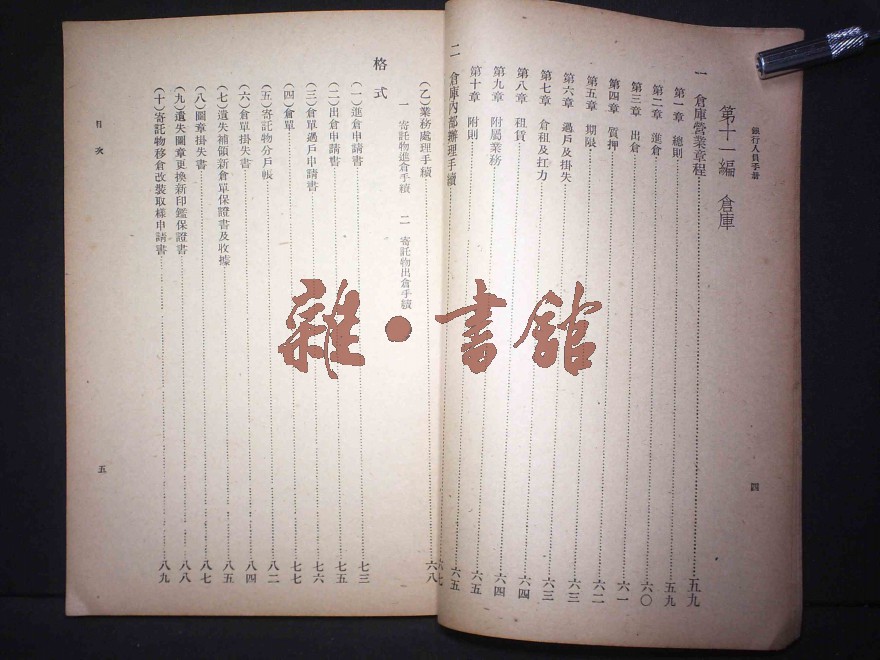 銀行人員手册
第十一編 倉庫
一 倉庫營業章程 五九
第一章 總則 五九
第二章 進倉 六〇
第三章 出倉 六一
第四章 質押 六二
第五章 期限 六三
第六章 過戶及掛失 六三
第七章 倉租及扛力 六三
第八章 租賃 六四
第九章 附屬業務 六四
第十章 附則 六五
二 倉庫內部辦理手續 六五
四
六七
(乙)業務處理手續 六八
一 寄託物進倉手續 二 寄託物出倉手續
格式
(一)進倉申請書 七三
(二)出倉申請書 七五
(三)倉單過戶申請書 七六
(四)倉單 七七
(五)寄託物分戶帳 八二
(六)倉單掛失書 八四
(七)遺失補領新倉單保證書及收據 八五
(八)圖章掛失書 八七
(九)遺失圖章更換新印鑑保證書 八八
(十)寄託物移倉改裝取樣申請書 八九
目次
五
雜•書館